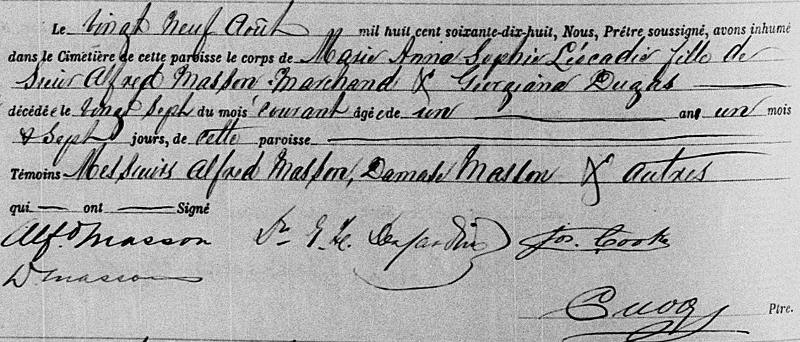 Le vingt neuf Août mil huit cent soixante-dix-huit, Nous, Prêtre soussigné, avons inhumé
dans le Cimetière de cette paroisse le corps de Marie Anna Sophie Léocadie fille de
Sieur Alfred Masson Marchand & Georgiana Dugas
décédée le vingt sept du mois courant âgée de un an un mois
& sept jours, de cette paroisse
Témoins Messieurs Alfred Masson, Damase Masson & autres
qui ont Signé
Alfd Masson Dr Desjardins Jos. Cooke
D Masson
Cuoq Ptre.